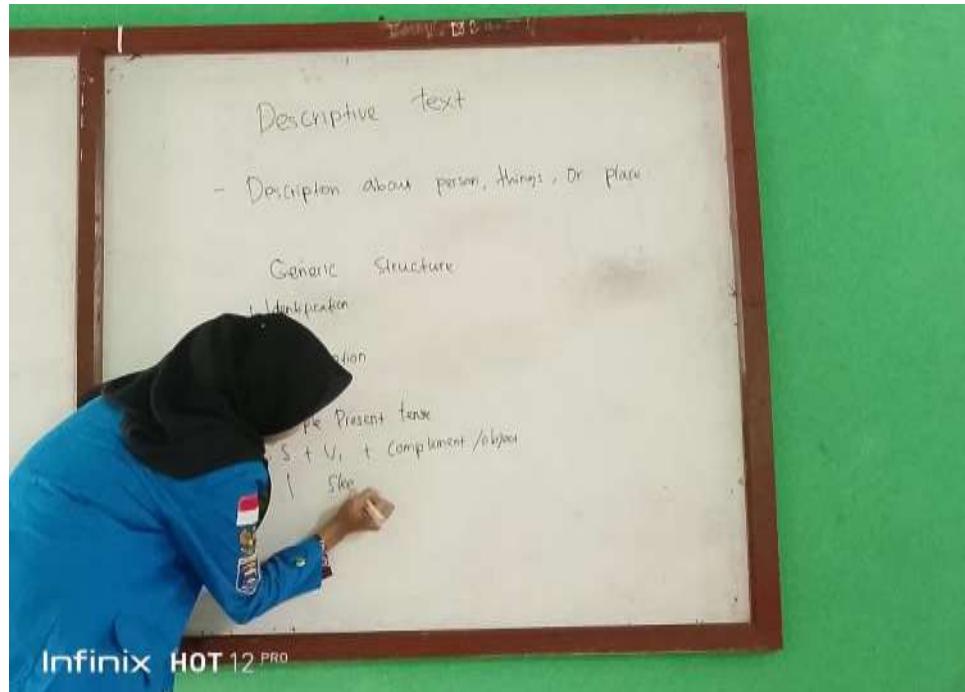 Descriptive text
- Descripton about person, things, or place
Generic Structure
Identification
Present tense
S + V1 + complement / object
I Slee
Infinix HOT 12 PRO